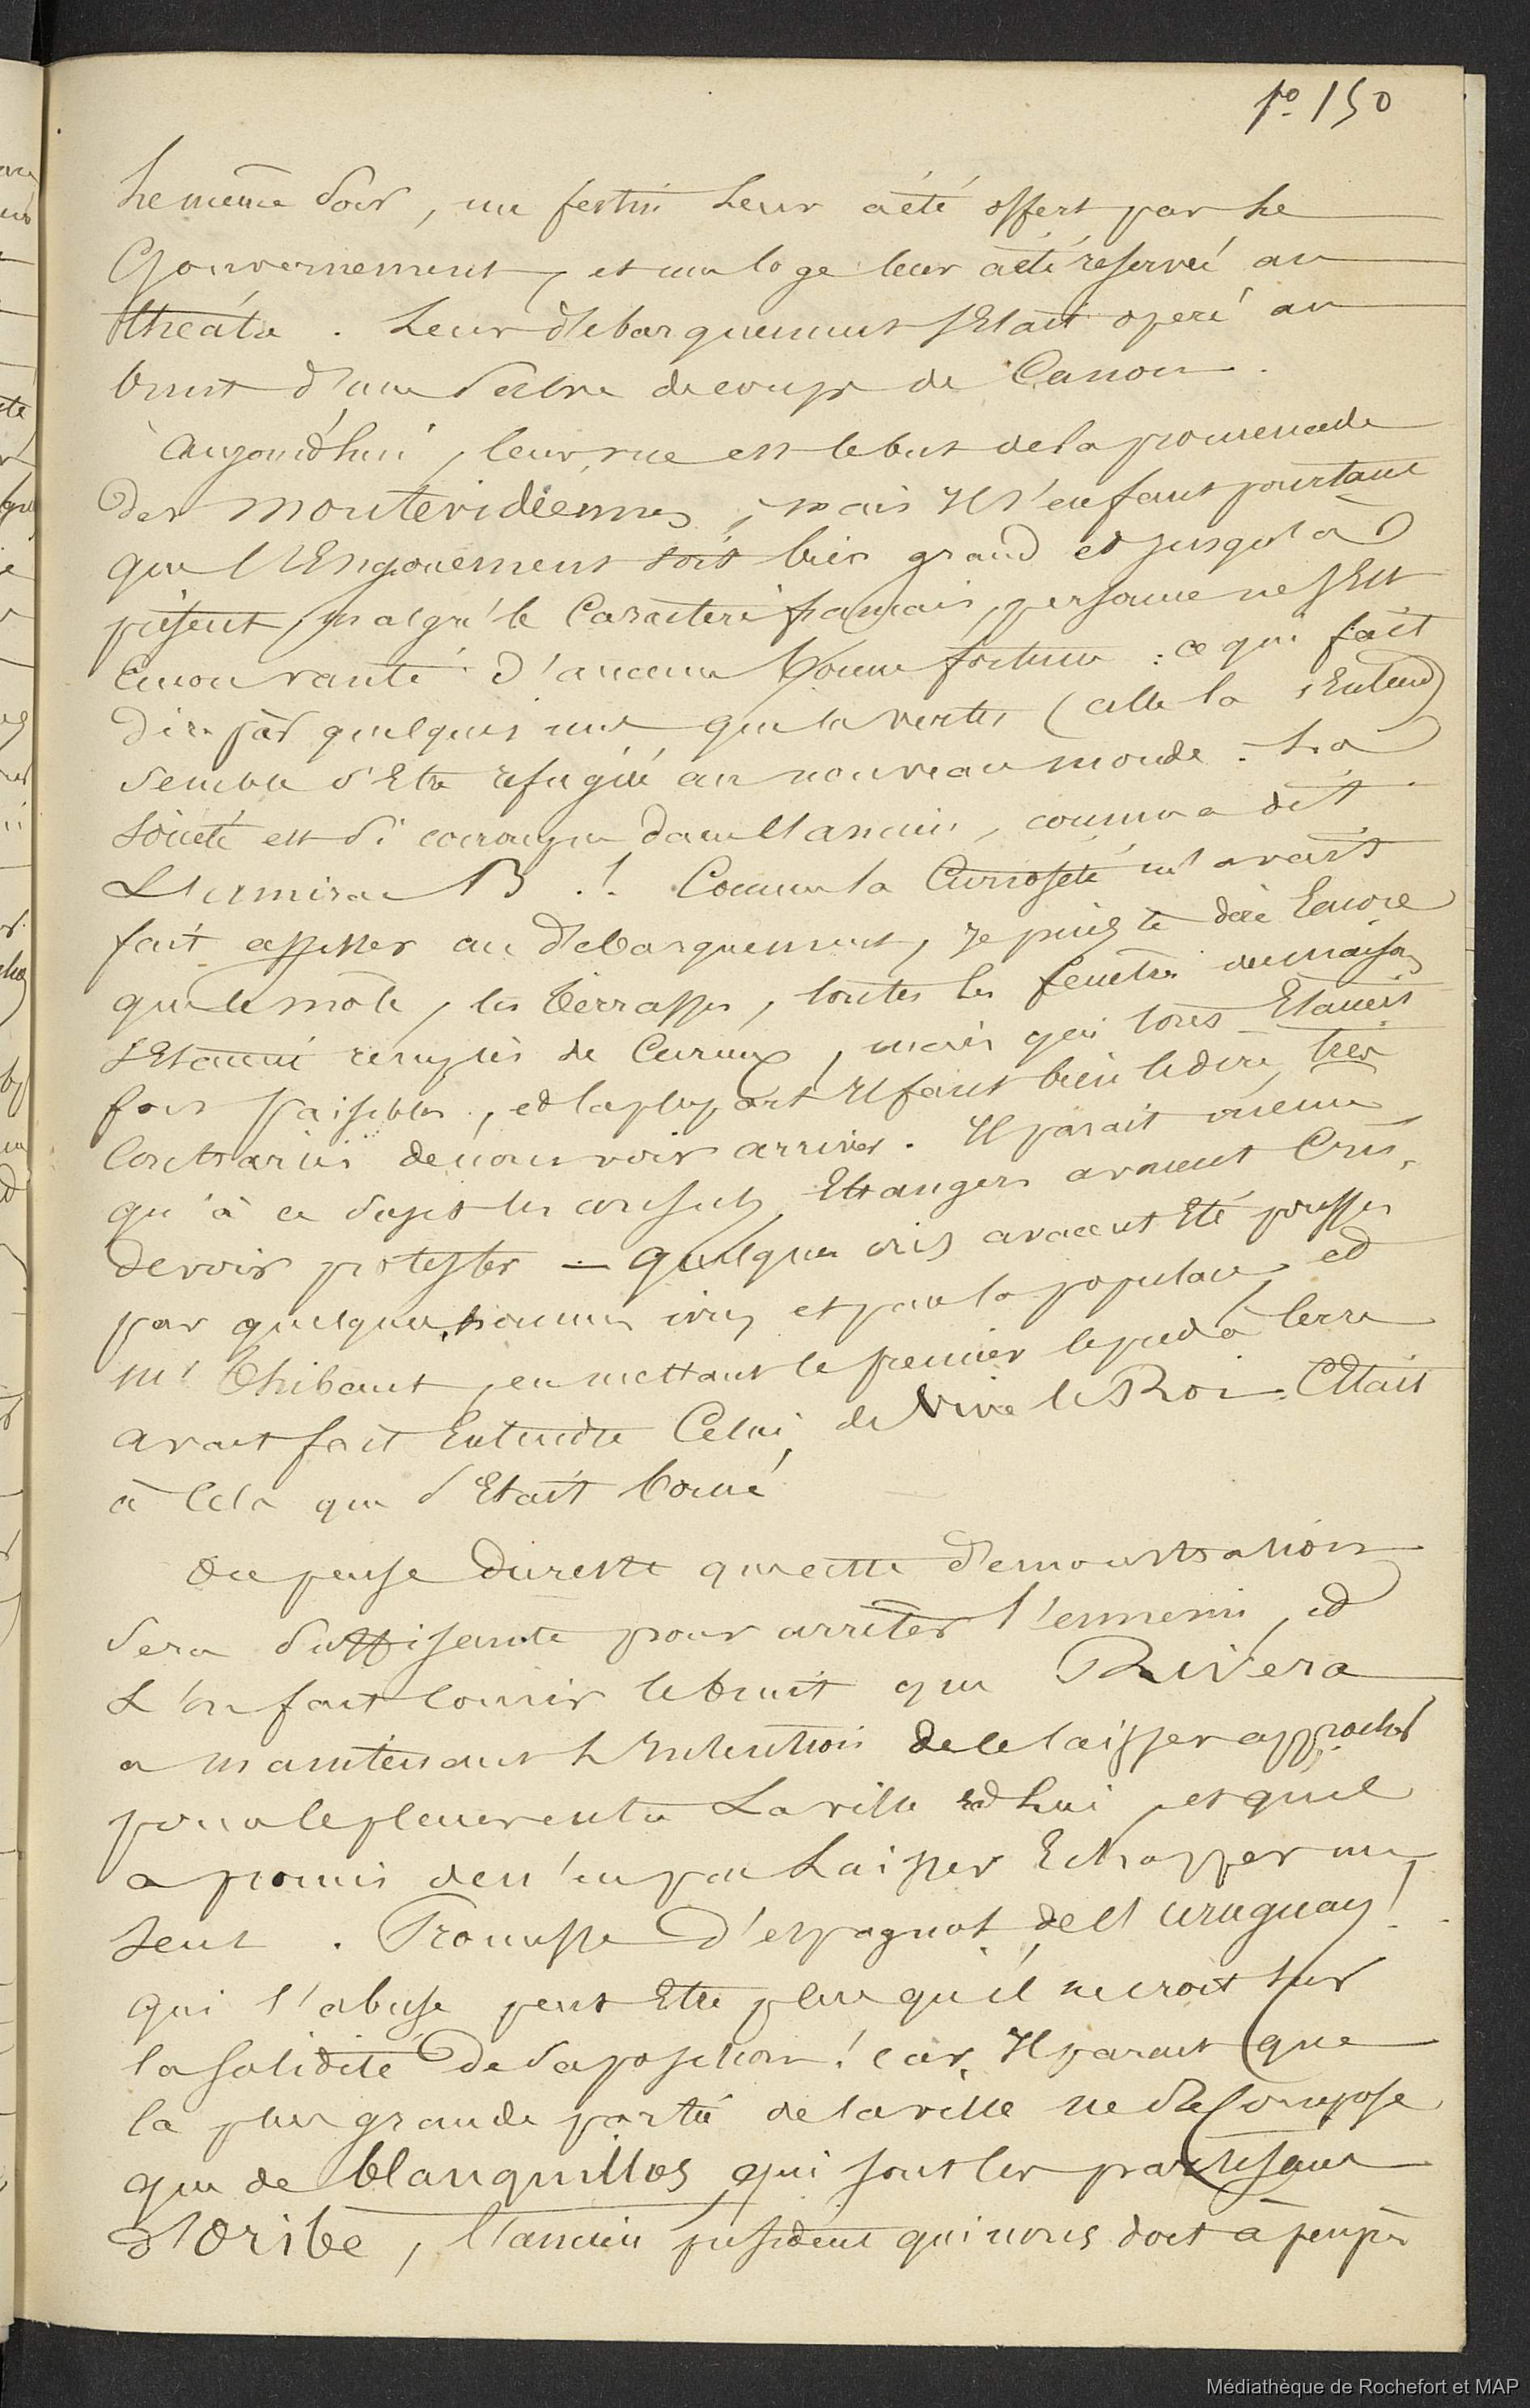 po. 150
Le même soir, un festin leur a été offert par le
Gouvernement, et une loge leur a été réservée au
théâtre. Leur débarquement s'Etait opéré au
bruit d'une Salve de coups de Canon.
Aujourd'hui, leur vue est le but de la promenade
des montévidéennes, mais Il s'en faut pourtant
que l'Engouement soit bien grand et jusqu'à
présent, malgré le Caractère français, personne ne s'Est
Encore vanté d'aucune bonne fortune : ce qui fait
dire par quelques uns que la vertu (celle la s'Entend)
semble s'Etre réfugiée au nouveau monde. La
société est si corrompue dans l'ancien, comme a dit
L'amiral B.! Comme la Curiosité m'avait
fait assister au débarquement, je puis te dire Encore
que le môle, les terrasses, toutes les fenêtres des maisons
s'Etaient remplis de Curieux, mais qui tous Etaient
fort paisibles, et la plupart Il faut bien le dire, très
Contrariés de nous voir arriver. Il parait même
qu'à ce sujet les consuls Etrangers avaient Cru
devoir protester — quelques cris avaient Eté poussés
par quelques hommes ivres et par la populace, et
Mr Thibaut, en mettant le premier le pied à terre
avait fait Entendre Celui de Vive le Roi. C'Etait
à Cela que s'Etait borné
On pense du reste que cette démonstration
sera suffisante pour arrêter l'ennemi, et
L'on fait courir le bruit que Rivera
a maintenant L'Intention de le laisser approcher
pour le placer entre La ville et lui, et qu'il
a promis de n'en pas Laisser Echapper un
seul. Promesse d'espagnol de l'uruguay!
qui s'abuse peut Etre plus qu'il ne croit sur
la solidité de sa position! car, Il parait que
la plus grande partie de la ville ne se Compose
que de blanquillos, qui sont les partisans
d'Oribe, l'ancien président qui nous doit à peu près